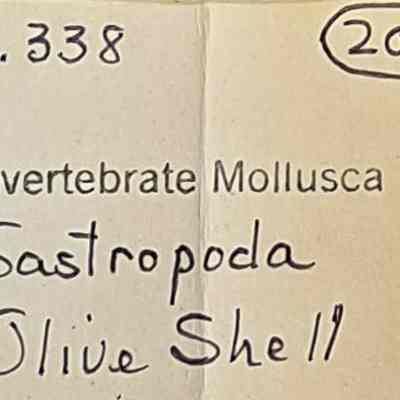 .338 20
vertebrate Mollusca
Gastropoda
Olive Shell